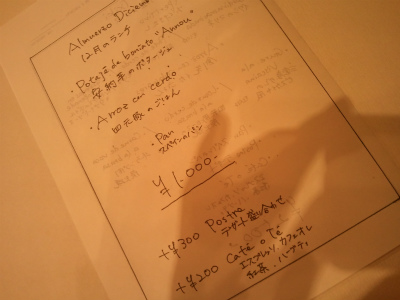 Almuerzo Diciembre
12月のランチ
・Potaje de boniato "Annou"
安納芋のポタージュ
・Arroz con cerdo
四元豚のごはん
・Pan
スペインのパン
¥1.000-
+¥300 Postre
デザート盛り合わせ
+¥200 Café o té
エスプレッソ、カフェオレ
紅茶、ハーブティ